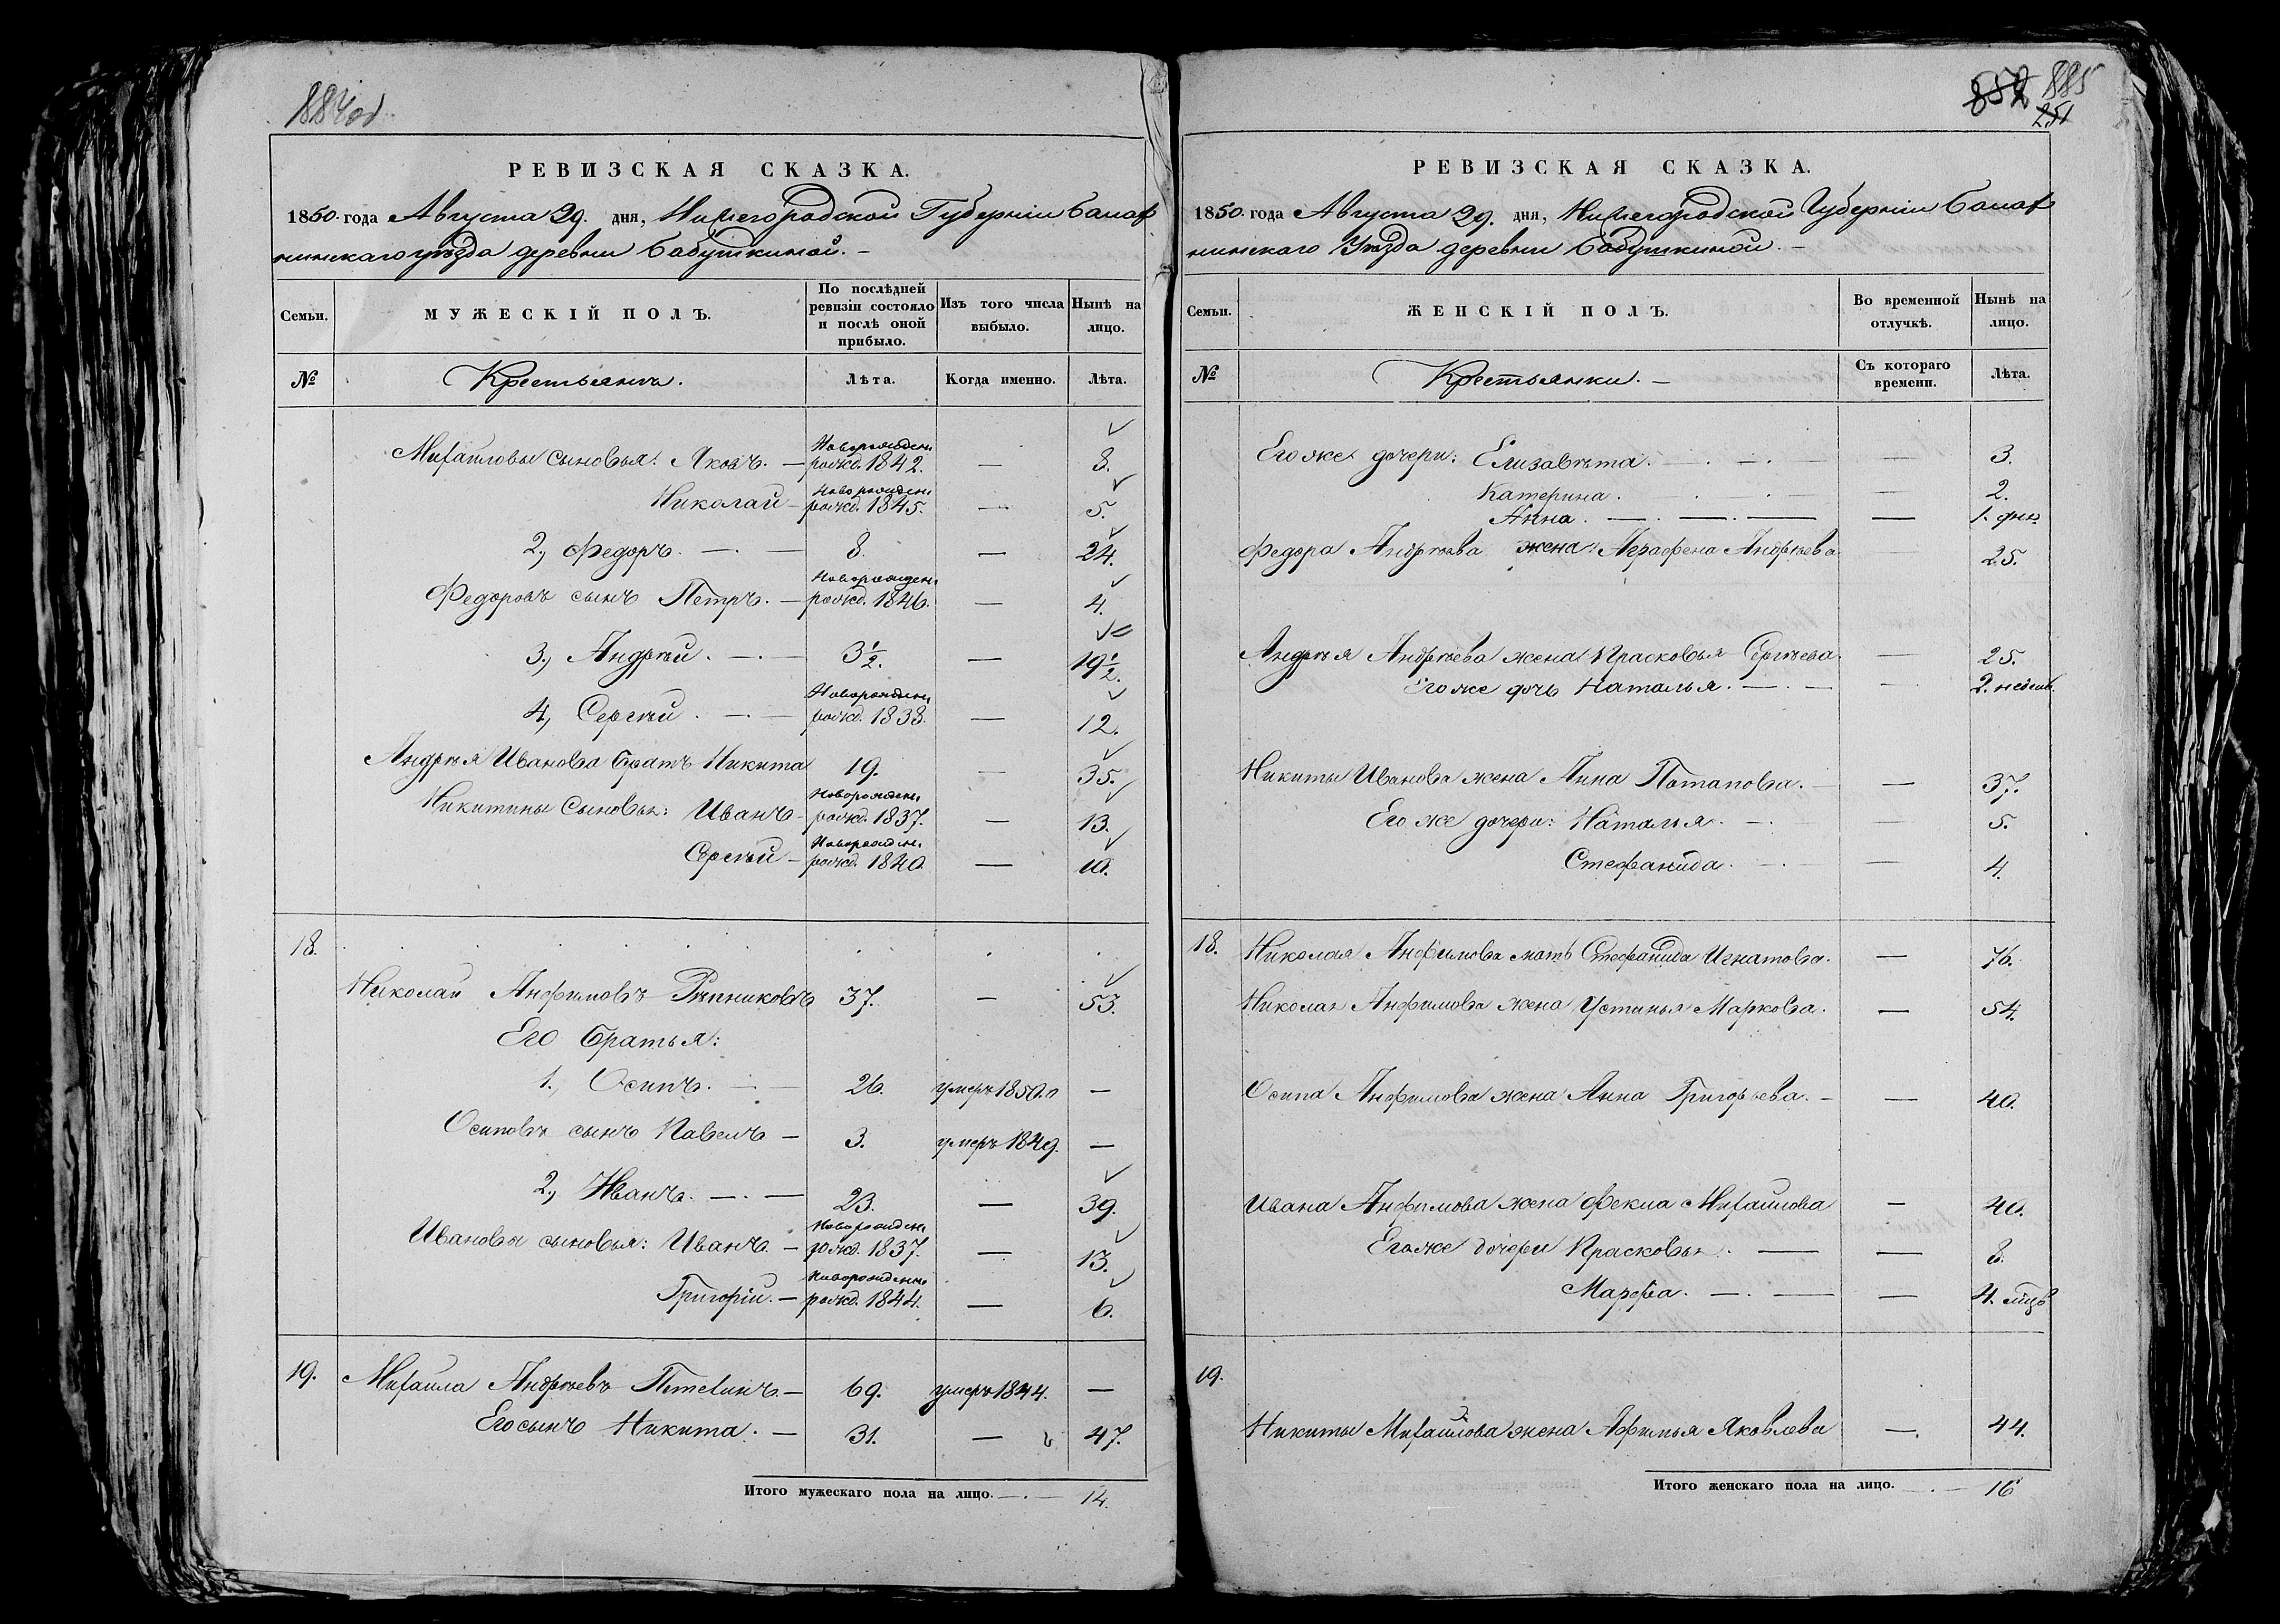 884об
РЕВИЗСКАЯ СКАЗКА.
1850. года Августа 29. дня, Нижегородской Губерніи Балах
нинскаго уѣзда деревни Бабушкиной. –
Семьи. МУЖЕСКІЙ ПОЛЪ. По послѣдней ревизіи состояло и послѣ оной прибыло. Изъ того числа выбыло. Нынѣ на лицо.
№ Крестьянъ. Лѣта. Когда именно. Лѣта.
Михайловы сыновья: Яковъ. — Новорожден. рожд. 1842. — 8.
Николай — Новорожден. рожд. 1845. — 5.
2, Федоръ. — 8. — 24.
Федоровъ сынъ Петръ. — Новорожден. рожд. 1846. — 4.
3, Андрѣй. — 3½. — 19½.
4, Сергѣй. — Новорожден. рожд. 1838. — 12.
Андрѣя Иванова братъ Никита 19. — 35.
Никитины сыновья: Иванъ — Новорожден. рожд. 1837. — 13.
Сергѣй — Новорожден. рожд. 1840. — 10.
18.
Николай Анфимовъ Рѣпниковъ 37. — 53.
Его братья:
1, Осипъ. — 26. умеръ 1850. —
Осиповъ сынъ Павелъ — 3. умеръ 1849. —
2, Иванъ. — 23. — 39.
Ивановы сыновья: Иванъ. — Новорожден. рожд. 1837. — 13.
Григорій. — Новорожден. рожд. 1844. — 6.
19. Михаила Андрѣевъ — 69. умеръ 1844. —
Его сынъ Никита. — 31. — 47.
Итого мужескаго пола на лицо. — 14.
852 885
251
РЕВИЗСКАЯ СКАЗКА.
1850. года Августа 29. дня, Нижегородской Губерніи Балах
нинскаго Уѣзда деревни Бабушкиной. –
Семьи. ЖЕНСКІЙ ПОЛЪ. Во временной отлучкѣ. Нынѣ на лицо.
№ Крестьянки. — Съ котораго времени. Лѣта.
Его же дочери: Елизавѣта. — — 3.
Катерина. — — 2.
Анна. — — 1. дня
Федора Андрѣева жена Аграфена Андрѣева 25.
Андрѣя Андрѣева жена Прасковья Сергѣева. — 25.
Его же дочь Наталья. — — 2. недѣль.
Никиты Иванова жена Анна Потапова. — 37.
Его же дочери: Наталья. — — 5.
Стефанида. — — 4.
18. Николая Анфимова мать Стефанида Игнатова. — 76.
Николая Анфимова жена Устинья Маркова. — 54.
Осипа Анфимова жена Анна Григорьева. — — 40.
Ивана Анфимова жена Фекла Михайлова — 40.
Его же дочери Прасковья. — — 8.
Марфа. — — 4. мцъ
19.
Никиты Михайлова жена Афимья Яковлева — 44.
Итого женскаго пола на лицо. — 16